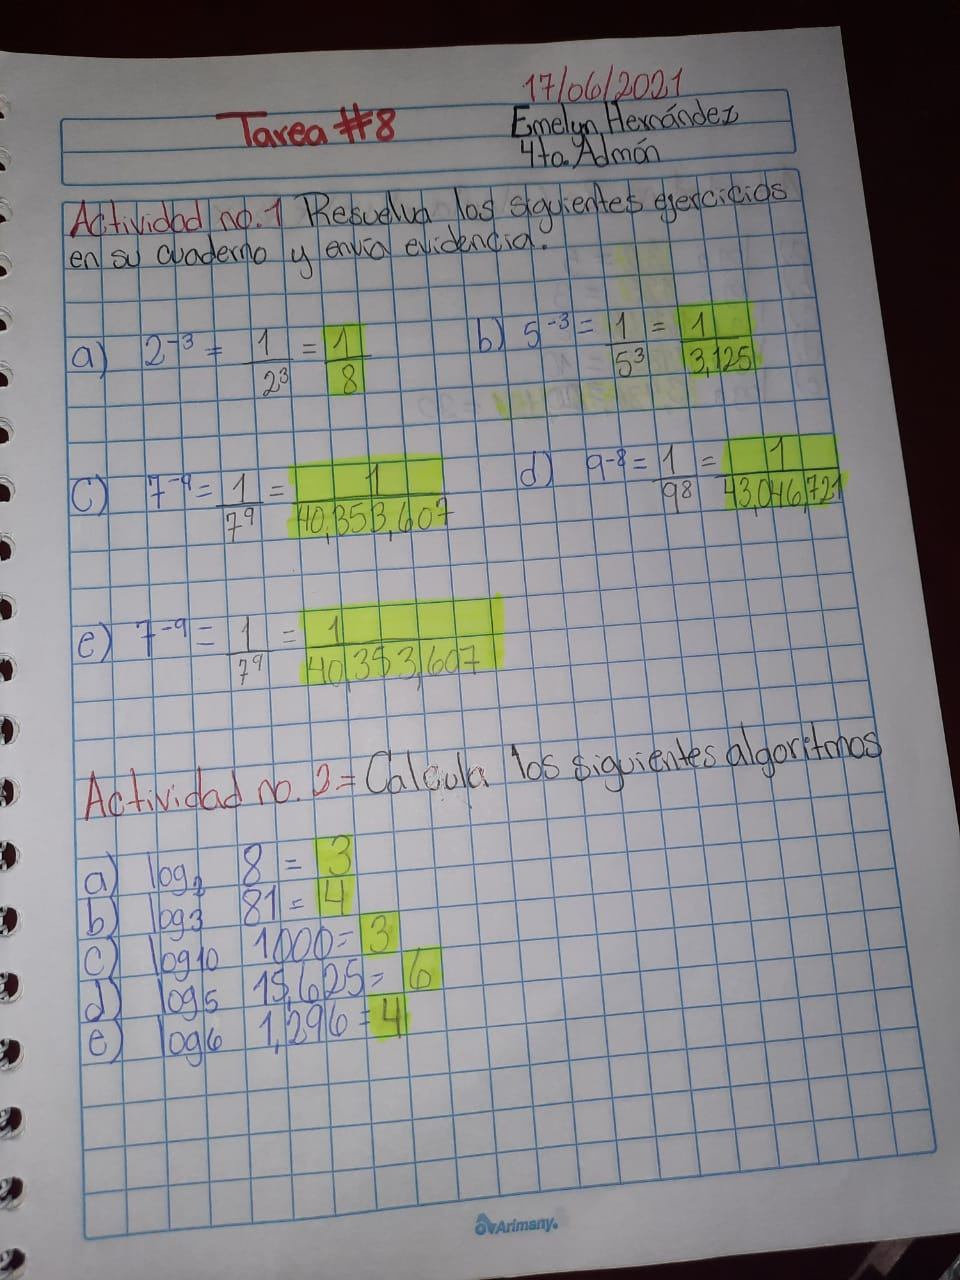 17/06/2021
Tarea #8
Emelyn Hernández
4to. Admón
Actividad no. 1 Resuelva los siguientes ejercicios
en su cuaderno y envía evidencia.
a) 2⁻³ = 1/2³ = 1/8
b) 5⁻³ = 1/5³ = 1/3,125
c) 7⁻⁹ = 1/7⁹ = 1/40,353,607
d) 9-8 = 1/98 = 1/43,046,721
e) 7⁻⁹ = 1/7⁹ = 1/40,353,607
Actividad no. 2 = Calcula los siguientes algoritmos
a) log₂ 8 = 3
b) log3 81 = 4
c) log10 1000 = 3
d) log5 15,625 = 6
e) log6 1,296 = 4
Arimany.